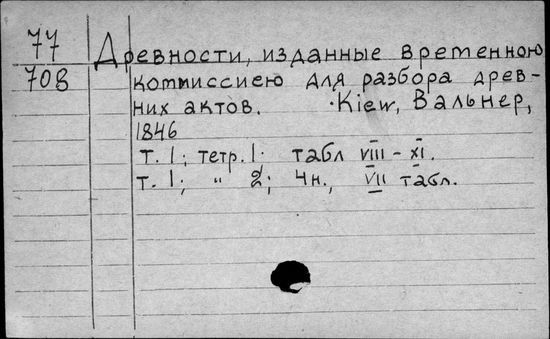 77 Древности, изданные временною
708 Коммиссиею для разбора древ-
них актов. ·Kiew, Вальнер,
1846
т. I; тетр. 1· табл VIII – XI.
т. I; " 2; 4н., VII табл.